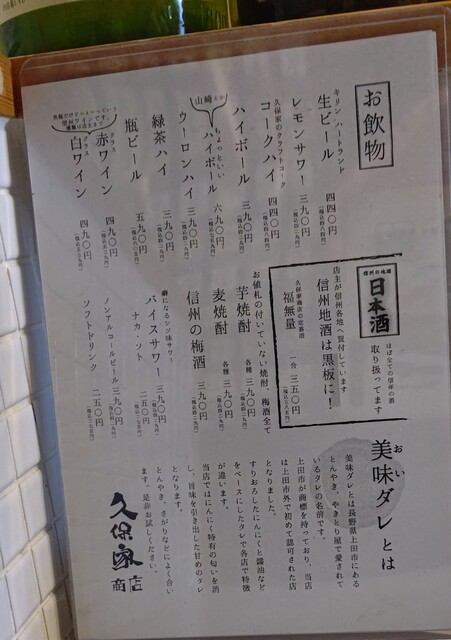 お飲物
キリン ハートランド
生ビール 四四〇円
レモンサワー 三九〇円
久保家のクラフトコーク
コークハイ 四四〇円
ハイボール 三九〇円
山崎
ちょっといい
ハイボール 六九〇円
ウーロンハイ 三九〇円
緑茶ハイ 三九〇円
瓶ビール 五九〇円
グラス
赤ワイン 四九〇円
グラス
白ワイン 四九〇円
信州の地酒
日本酒
ほぼ全ての信州の酒
取り扱ってます
店主が信州各地へ買付しています
信州地酒は黒板に!
久保家商店の定番酒
福無量 一合 三五〇円
お値札の付いていない焼酎、梅酒全て
芋焼酎 各種 三九〇円
麦焼酎 各種 三九〇円
信州の梅酒 三九〇円
癖になるシソ味サワー
バイスサワー 三九〇円
ナカ・ソト 二五〇円
ノンアルコールビール 三九〇円
ソフトドリンク 二五〇円
おい
美味ダレとは
美味ダレとは長野県上田市にある
とんやき、やきとり屋で愛されて
いるタレの名前です。
上田市が商標を持っており、当店
は上田市外で初めて認可された店
となりました。
すりおろしたにんにくと醤油など
をベースにしたタレで各店で特徴
が違います。
当店ではにんにく特有の匂いを消
し、旨味を引き出した甘めのタレ
となります。
とんやき、さがりなどによく合い
ます。是非お試しください。
久保家
商店